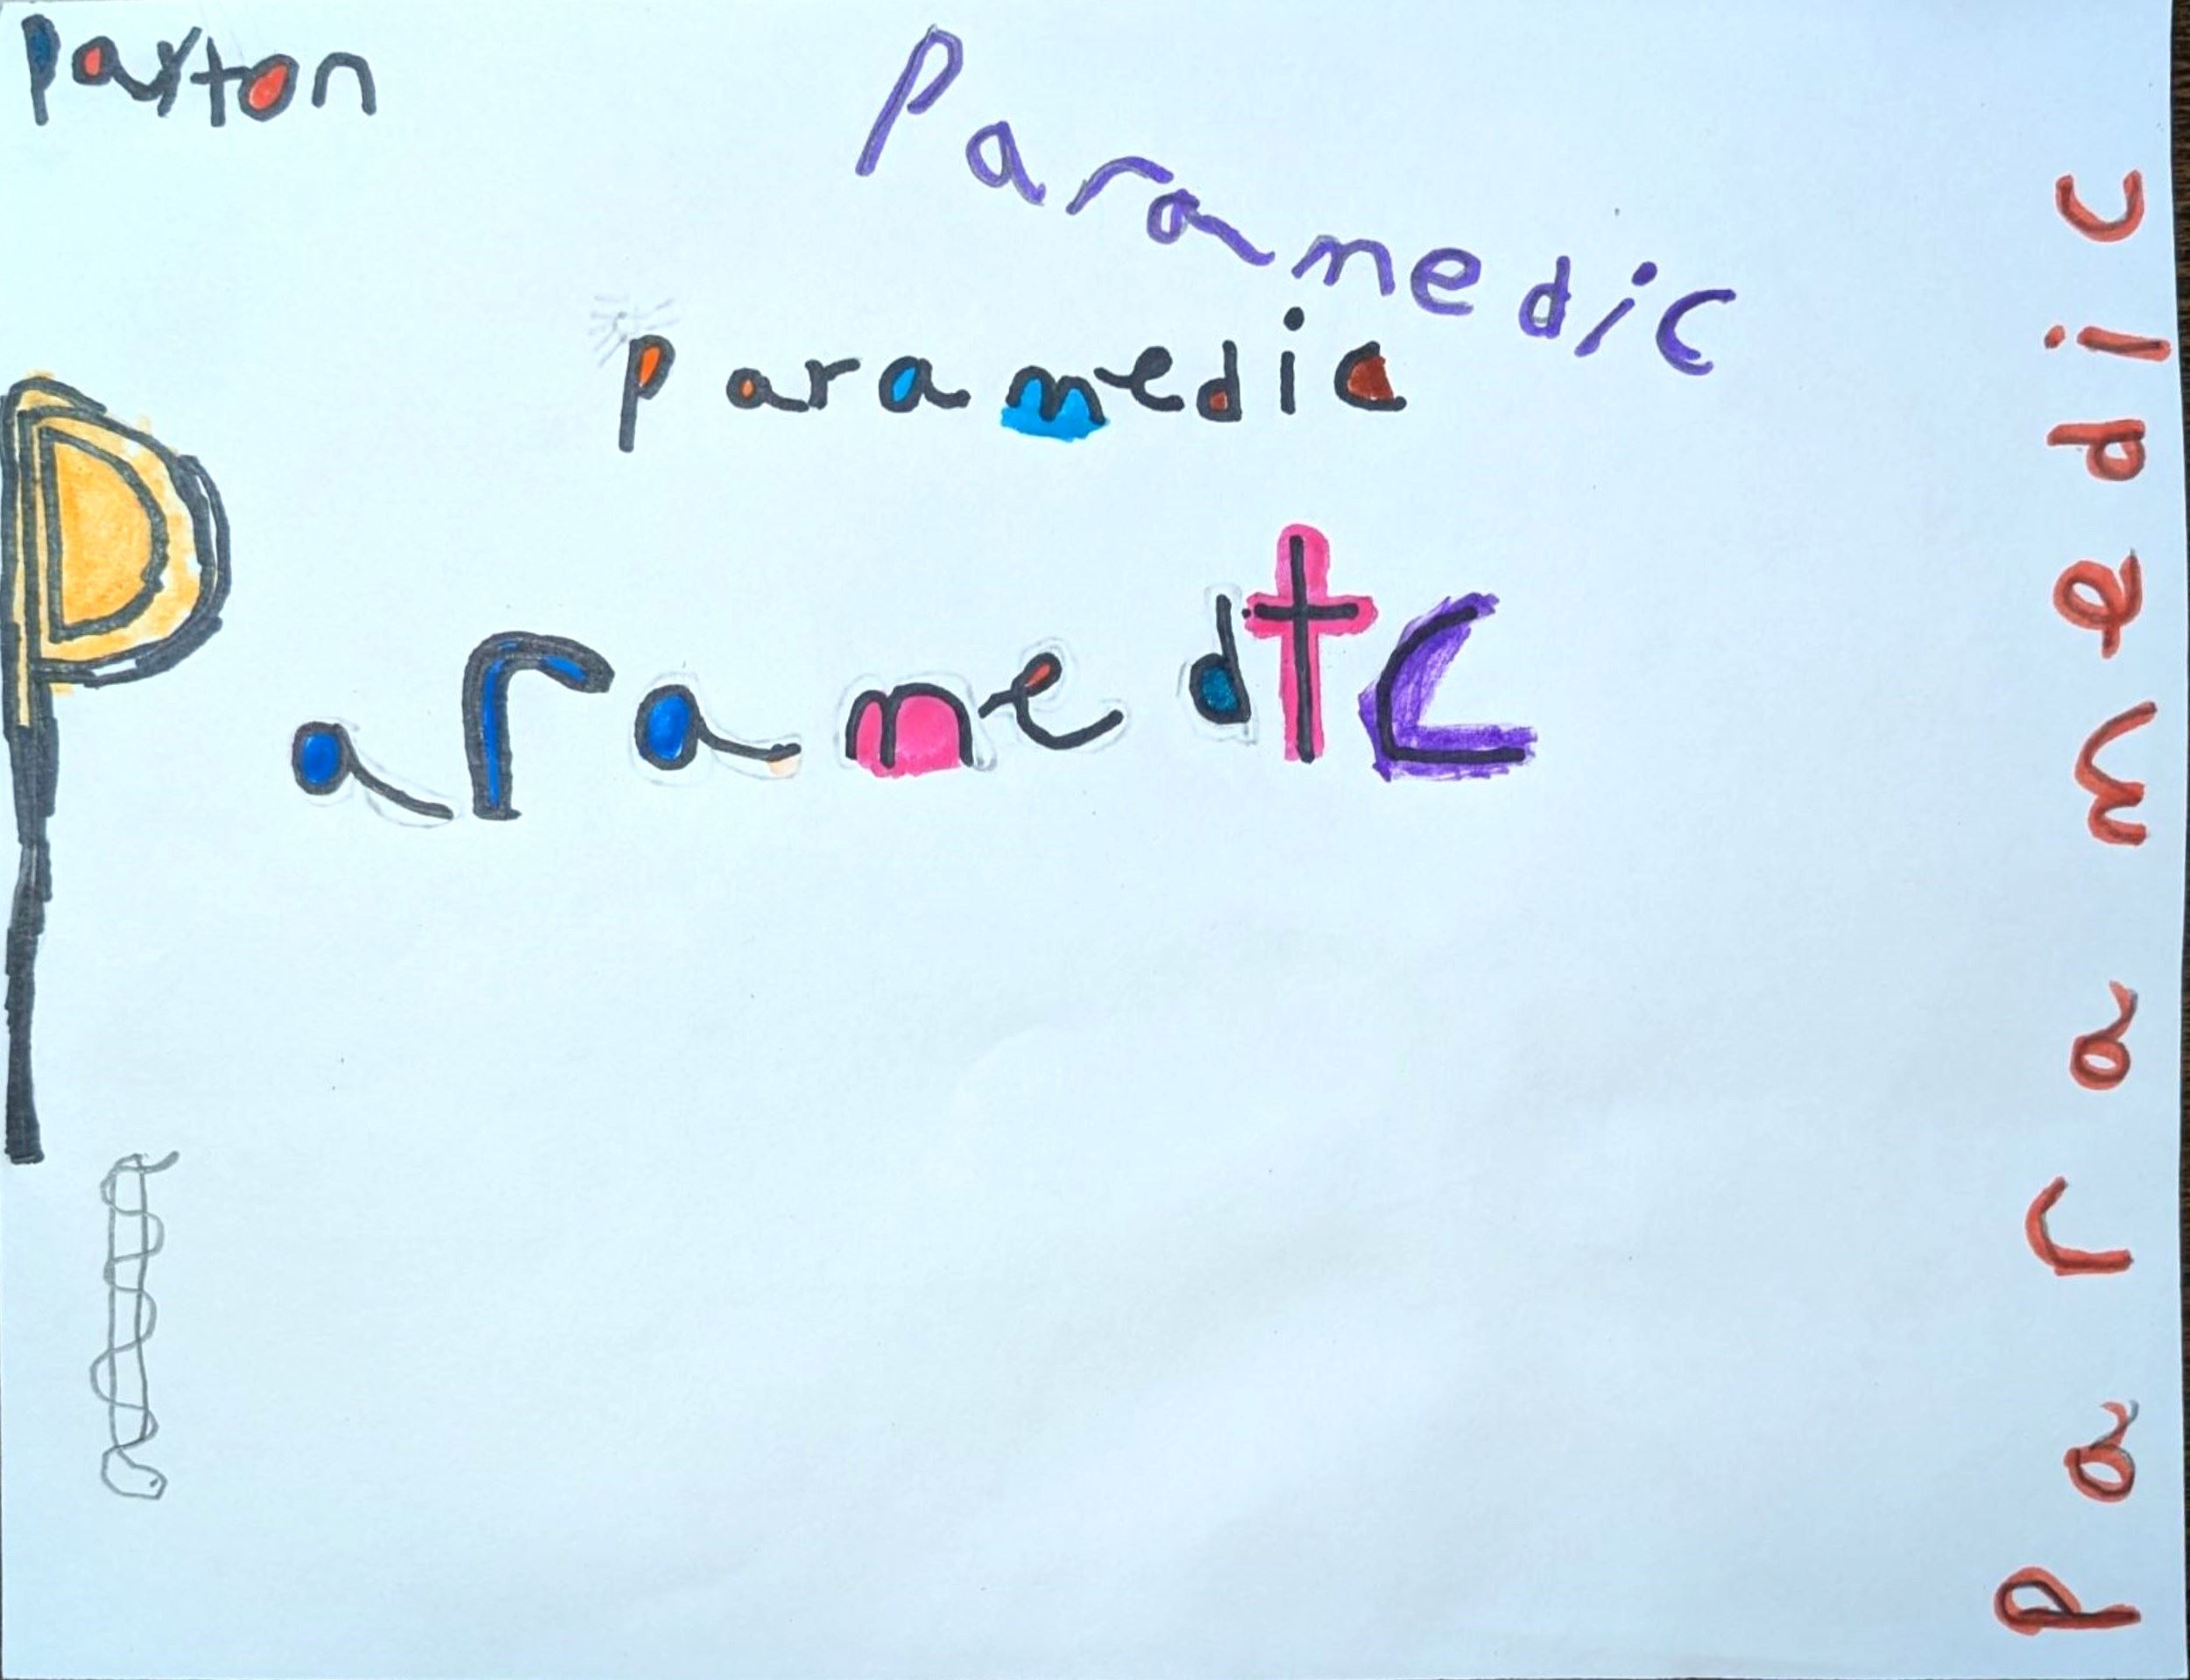 Paxton
Paramedic
paramedic
Paramedtc
Paramedic